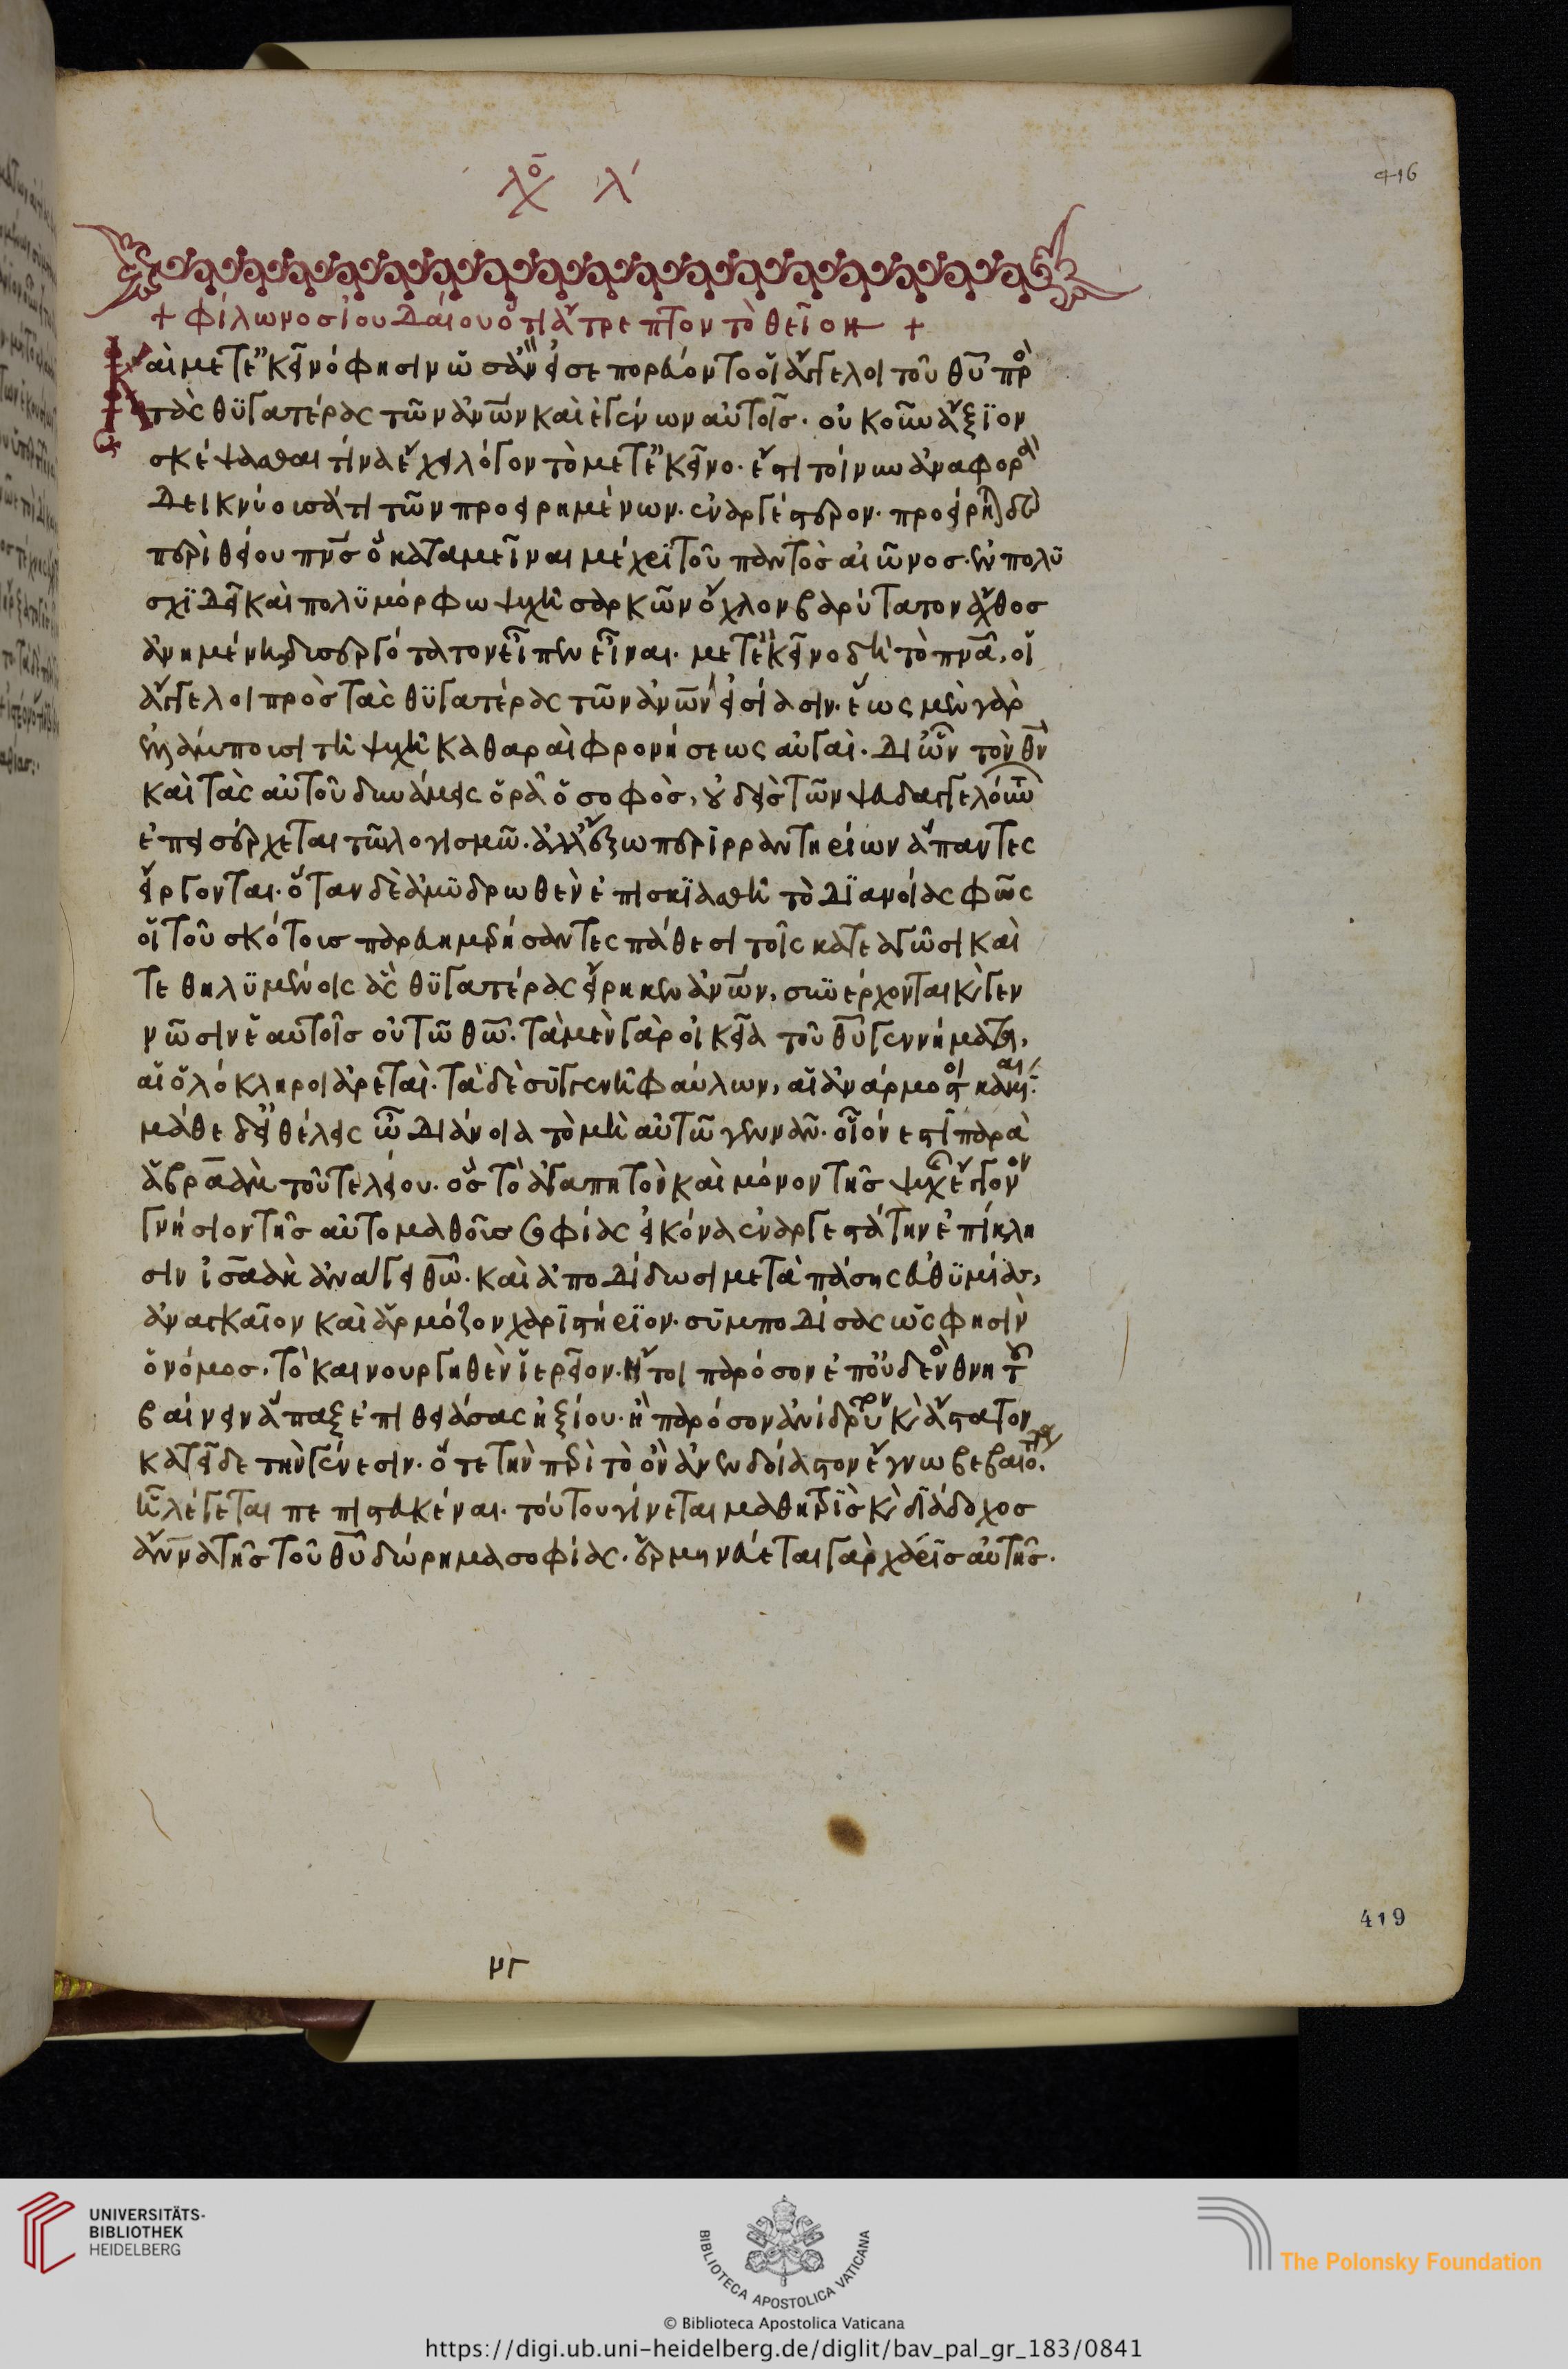 λό(χ) λ'
+ Φίλωνος ἰουδάιου ὅτι ἄτρεπτον τὸ θεῖον +
Καὶ μετ' ἐκεῖνό φησιν ὡς ἂν εἰσεπορεύοντο οἱ ἄγγελοι τοῦ θυ πρὸ
τὰς θϋγατέρας τῶν ἀνων καὶ ἐγένων αὐτοῖς. οὐκοῦν ἄξϊον
σκέψασθαι τίνα ἔχει λόγον τὸ μετ' ἐκεῖνο. ἔστι τοίνυν ἀναφορὰ
δεικνύουσά τι τῶν προειρημένων. ἐναργέστερον. προείρηται δὲ
περὶ θείου πνς ὃ καταμεῖναι μέχρϊ τοῦ παντὸς αἰῶνος. ἐν πολϋ
σχϊδεῖ καὶ πολϋμόρφω ψυχῆ σαρκῶν ὄχλον βαρύτατον ἄχθος
ἀνημένη, δυσεργότατον εἶπεν εἶναι. μετ' ἐκεῖνο δὴ τὸ πνα, οἱ
ἄγγελοι πρὸς τὰς θϋγατέρας τῶν ἀνων εἰσίασιν. ἕως μὲν γὰρ
ἐλλάμπουσι τῆ ψυχῆ καθαραὶ φρονήσεως αὐγαὶ. δι ὧν τὸν θν
καὶ τὰς αὐτοῦ δυνάμεις ὁρᾶ ὁ σοφὸς, οὐδεὶς τῶν ψευδαγγελούντων
ἐπεισέρχεται τῶ λογισμῶ. ἀλλ' ἔξω περϊρραντηρίων ἅπαντες
εἴργονται. ὅταν δὲ ἀμϋδρωθὲν ἐπισκϊασθῆ τὸ διανοίας φῶς
οἱ τοῦ σκότους παρευημερήσαντες πάθεσι τοῖς κατεαγῶσι καὶ
τεθηλϋμένοις ἃς θϋγατέρας εἴρηκεν ἀνων, συνέρχονται κ γεν
νῶσιν ἑαυτοῖς οὐ τῶ θω. τὰ μὲν γὰρ οἰκεῖα τοῦ θυ γεννήματα,
αἱ ὁλόκληροι ἀρεταὶ. τὰ δὲ συγγενῆ φαύλων, αἱ ἀνάρμοστοι κακίαι.
μάθε δ' εἰ θέλεις ὦ διάνοια τὸ μὴ αὐτῶ γεννᾶν. οἷόν ἐστι παρὰ
ἀβραὰμ τοῦ τελείου. ὃς τὸ ἀγαπητὸν καὶ μόνον τῆς ψυχῆς ἔγγονον
γνήσιον τῆς αὐτομαθοῦς σοφίας εἰκόνα ἐναργεστάτην ἐπίκλη
σιν ἰσαὰκ ἀναγει θω. καὶ ἀποδίδωσι μετὰ πάσης εὐθϋμίας,
ἀναγκαῖον καὶ ἁρμόζον χαρϊστήρϊον. συμποδίσας ὥς φησὶν
ὁ νόμος. τὸ καινουργηθὲν ἱερεῖον. ἤτοι παρόσον ἐπ' οὐδενὸς θνητοῦ
βαίνειν ἅπαξ ἐπιθειάσας ἠξίου. ἢ παρόσον ἀνίδρυτον κ ἄστατον
κατεῖδε τὴν γένεσιν. ὅτε τὴν περὶ τὸ ὂν ἀνενδοίαστον ἔγνω βεβαιότητα.
ἧ λέγεται πεπιστευκέναι. τούτου γίνεται μαθητρὶς κ διάδοχος
ἄννα τῆς τοῦ θυ δώρημα σοφίας. ἑρμηνεύεται γὰρ χάρϊς αὐτῆς.
μγ
416
419
UNIVERSITÄTS-
BIBLIOTHEK
HEIDELBERG
BIBLIOTECA APOSTOLICA VATICANA
© Biblioteca Apostolica Vaticana
The Polonsky Foundation
https://digi.ub.uni-heidelberg.de/diglit/bav_pal_gr_183/0841